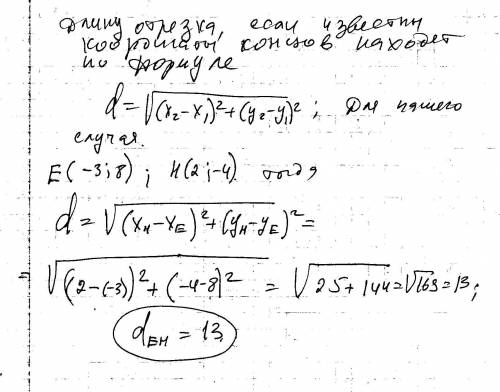 Длину отрезка, если известны
координаты концов находят
по формуле
d = √(x₂-x₁)²+(y₂-y₁)² ; Для нашего
случая.
E(-3;8) ; H(2;-4) тогда
d = √(x_H-x_E)²+(y_H-y_E)² =
= √(2-(-3))²+(-4-8)² = √25+144 = √169 = 13;
d_EH = 13